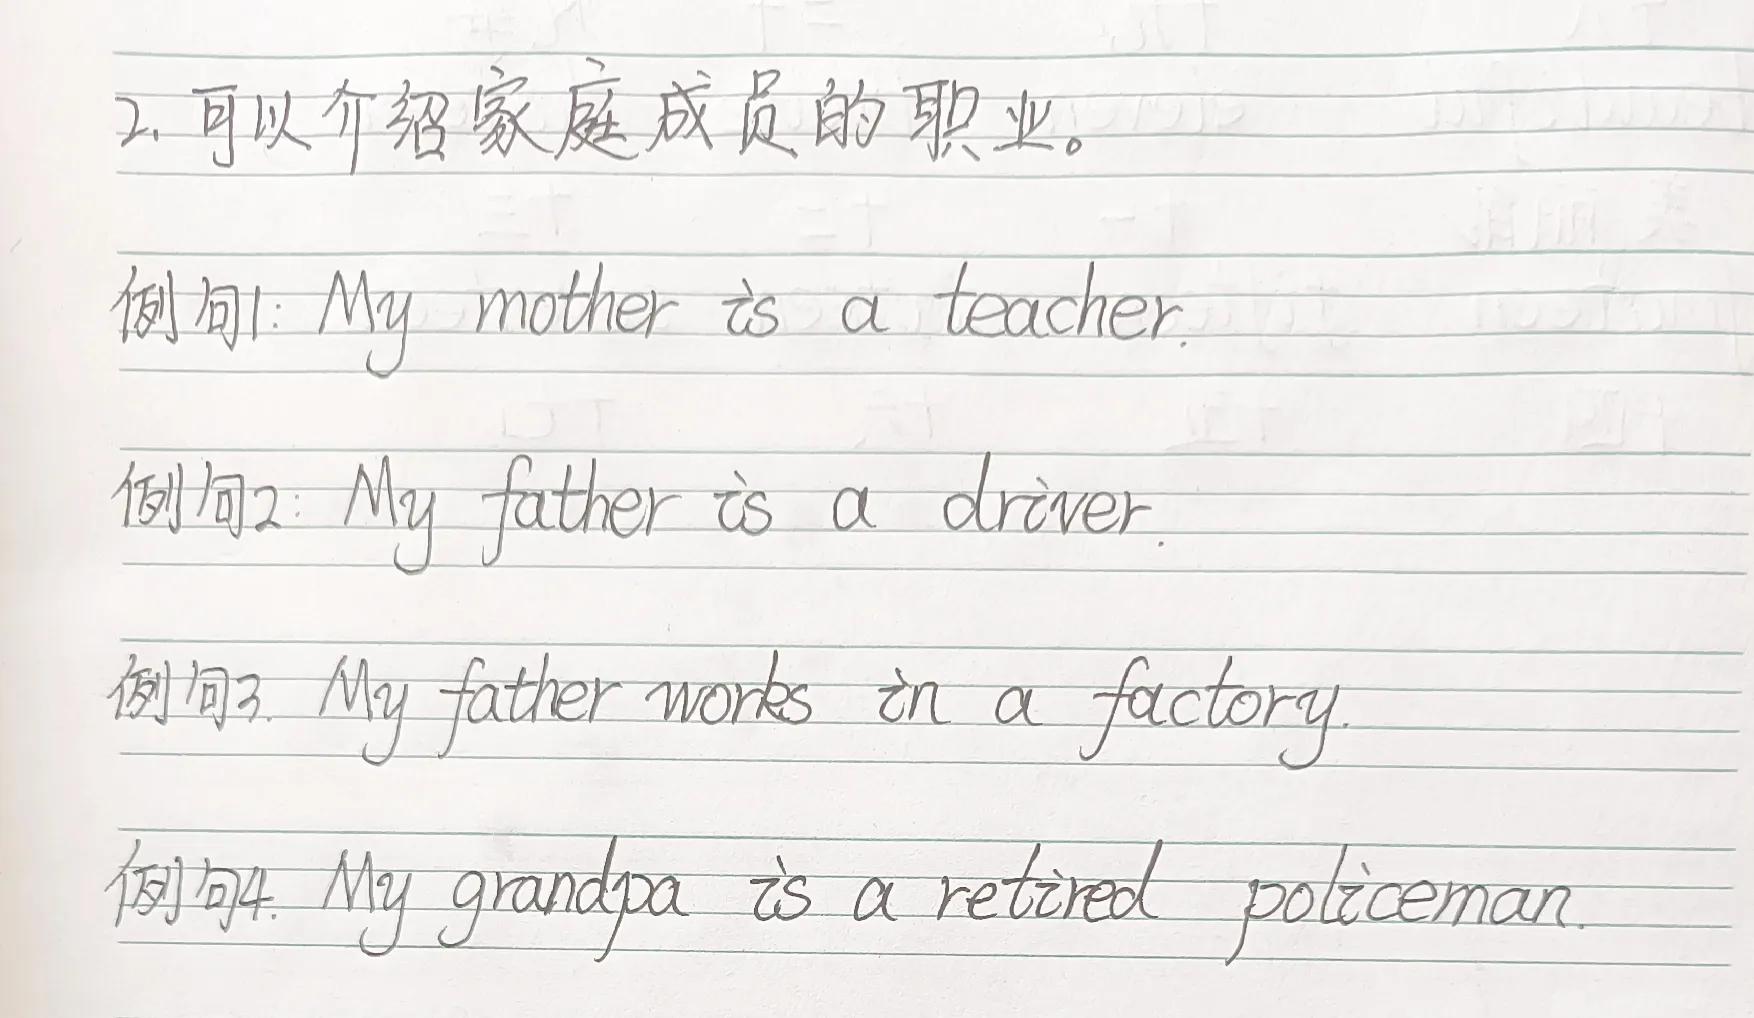 2. 可以介绍家庭成员的职业。
例句1: My mother is a teacher.
例句2: My father is a driver.
例句3. My father works in a factory.
例句4. My grandpa is a retired policeman.